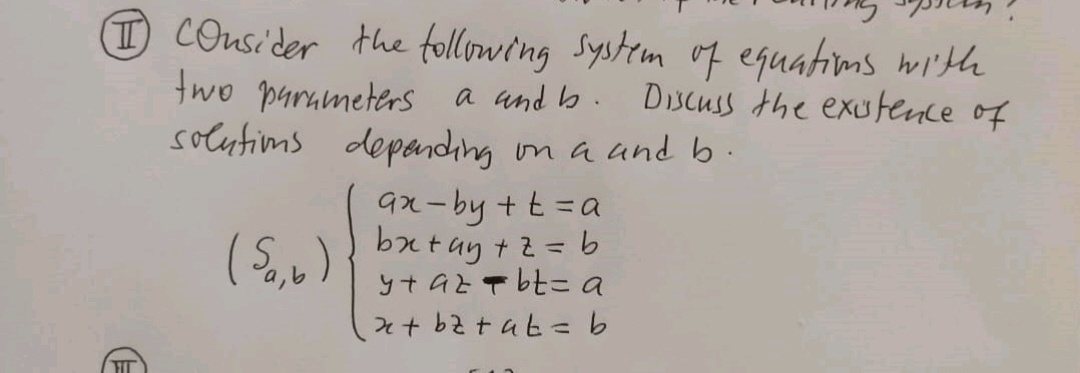 II Consider the following system of equations with
two parameters a and b. Discuss the existence of
solutions depending on a and b.
(S_{a,b}) { ax - by + t = a
bx + ay + z = b
y + az - bt = a
x + bz + at = b
III